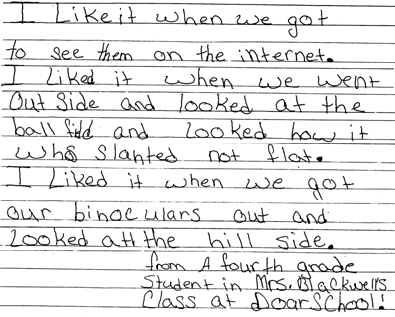 I Like it when we got
to see them on the internet.
I Liked it when we went
Out Side and looked at the
ball fild and looked how it
whas Slanted not flat.
I Liked it when we got
our binoculars out and
looked at the hill side.
from A fourth grade
Student in Mrs. Blackwell's
Class at Doar School!